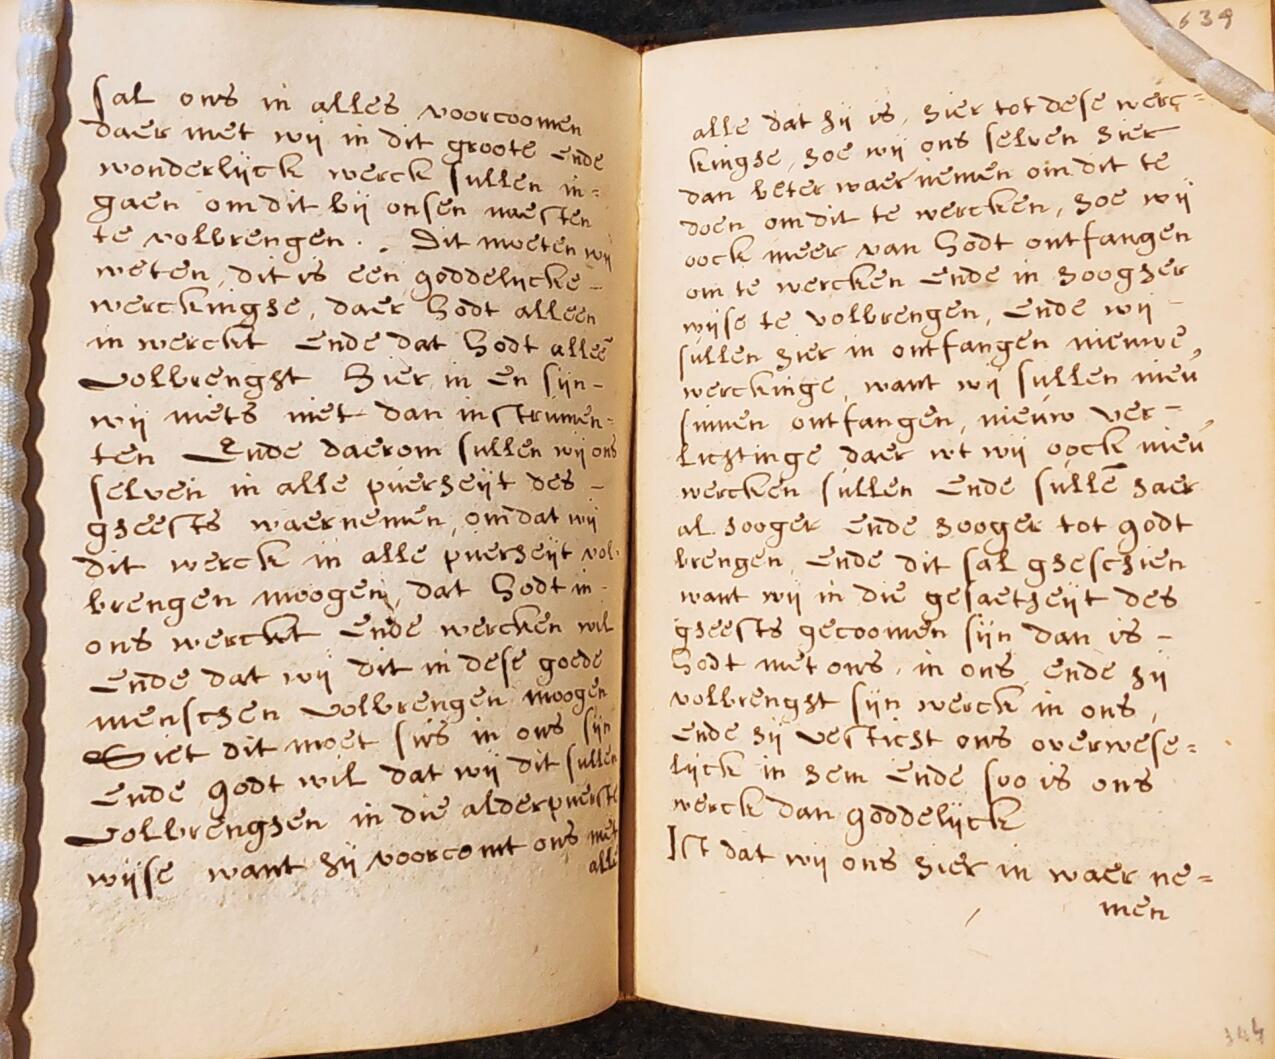 sal ons in alles voorcoomen
daer met wij in dit groote ende
wonderlijck werck sullen in=
gaen om dit bij onsen naesten
te volbrengen. Dit moeten wij
weten, dit is een goddelijcke -
werckinghe, daer Godt alleen
in werckt Ende dat Godt alleē
volbrenght Hier in En sijn -
wij niets niet dan instrumen=
ten Ende daerom sullen wij ons
selven in alle puerheijt des -
gheests waernemen, omdat wij
dit werck in alle puerheijt vol-
brengen moogen, dat Godt in -
ons werckt Ende wercken wil
Ende dat wij dit in dese goede
menschen volbrengen moogen
Siet dit moet sus in ons sijn
Ende godt wil dat wij dit sullen
volbrenghen in die alderpuerste
wijse want hij voorcomt ons met
alle
639
alle dat hij is, hier tot dese werc=
kinghe, hoe wij ons selven hier
dan beter waernemen om dit te
doen om dit te wercken, hoe wij
oock meer van Godt ontfangen
om te wercken Ende in hoogher
wijse te volbrengen, Ende wij -
sullen hier in ontfangen nieuwe,
werckinge, want wij sullen nieu
sinnen ontfangen, nieuw ver -
lichtinge daer wt wij oock nieu
wercken sullen Ende sullē haer
al hooger Ende hooger tot godt
brengen, Ende dit sal gheschien
want wij in die gelaetheijt des
gheests gecoomen sijn dan is -
Godt met ons, in ons Ende hij
volbrenght sijn werck in ons,
Ende hij vesticht ons overwese=
lijck in hem Ende soo is ons
werck dan goddelijck
Ist dat wij ons hier in waer ne=
men
344